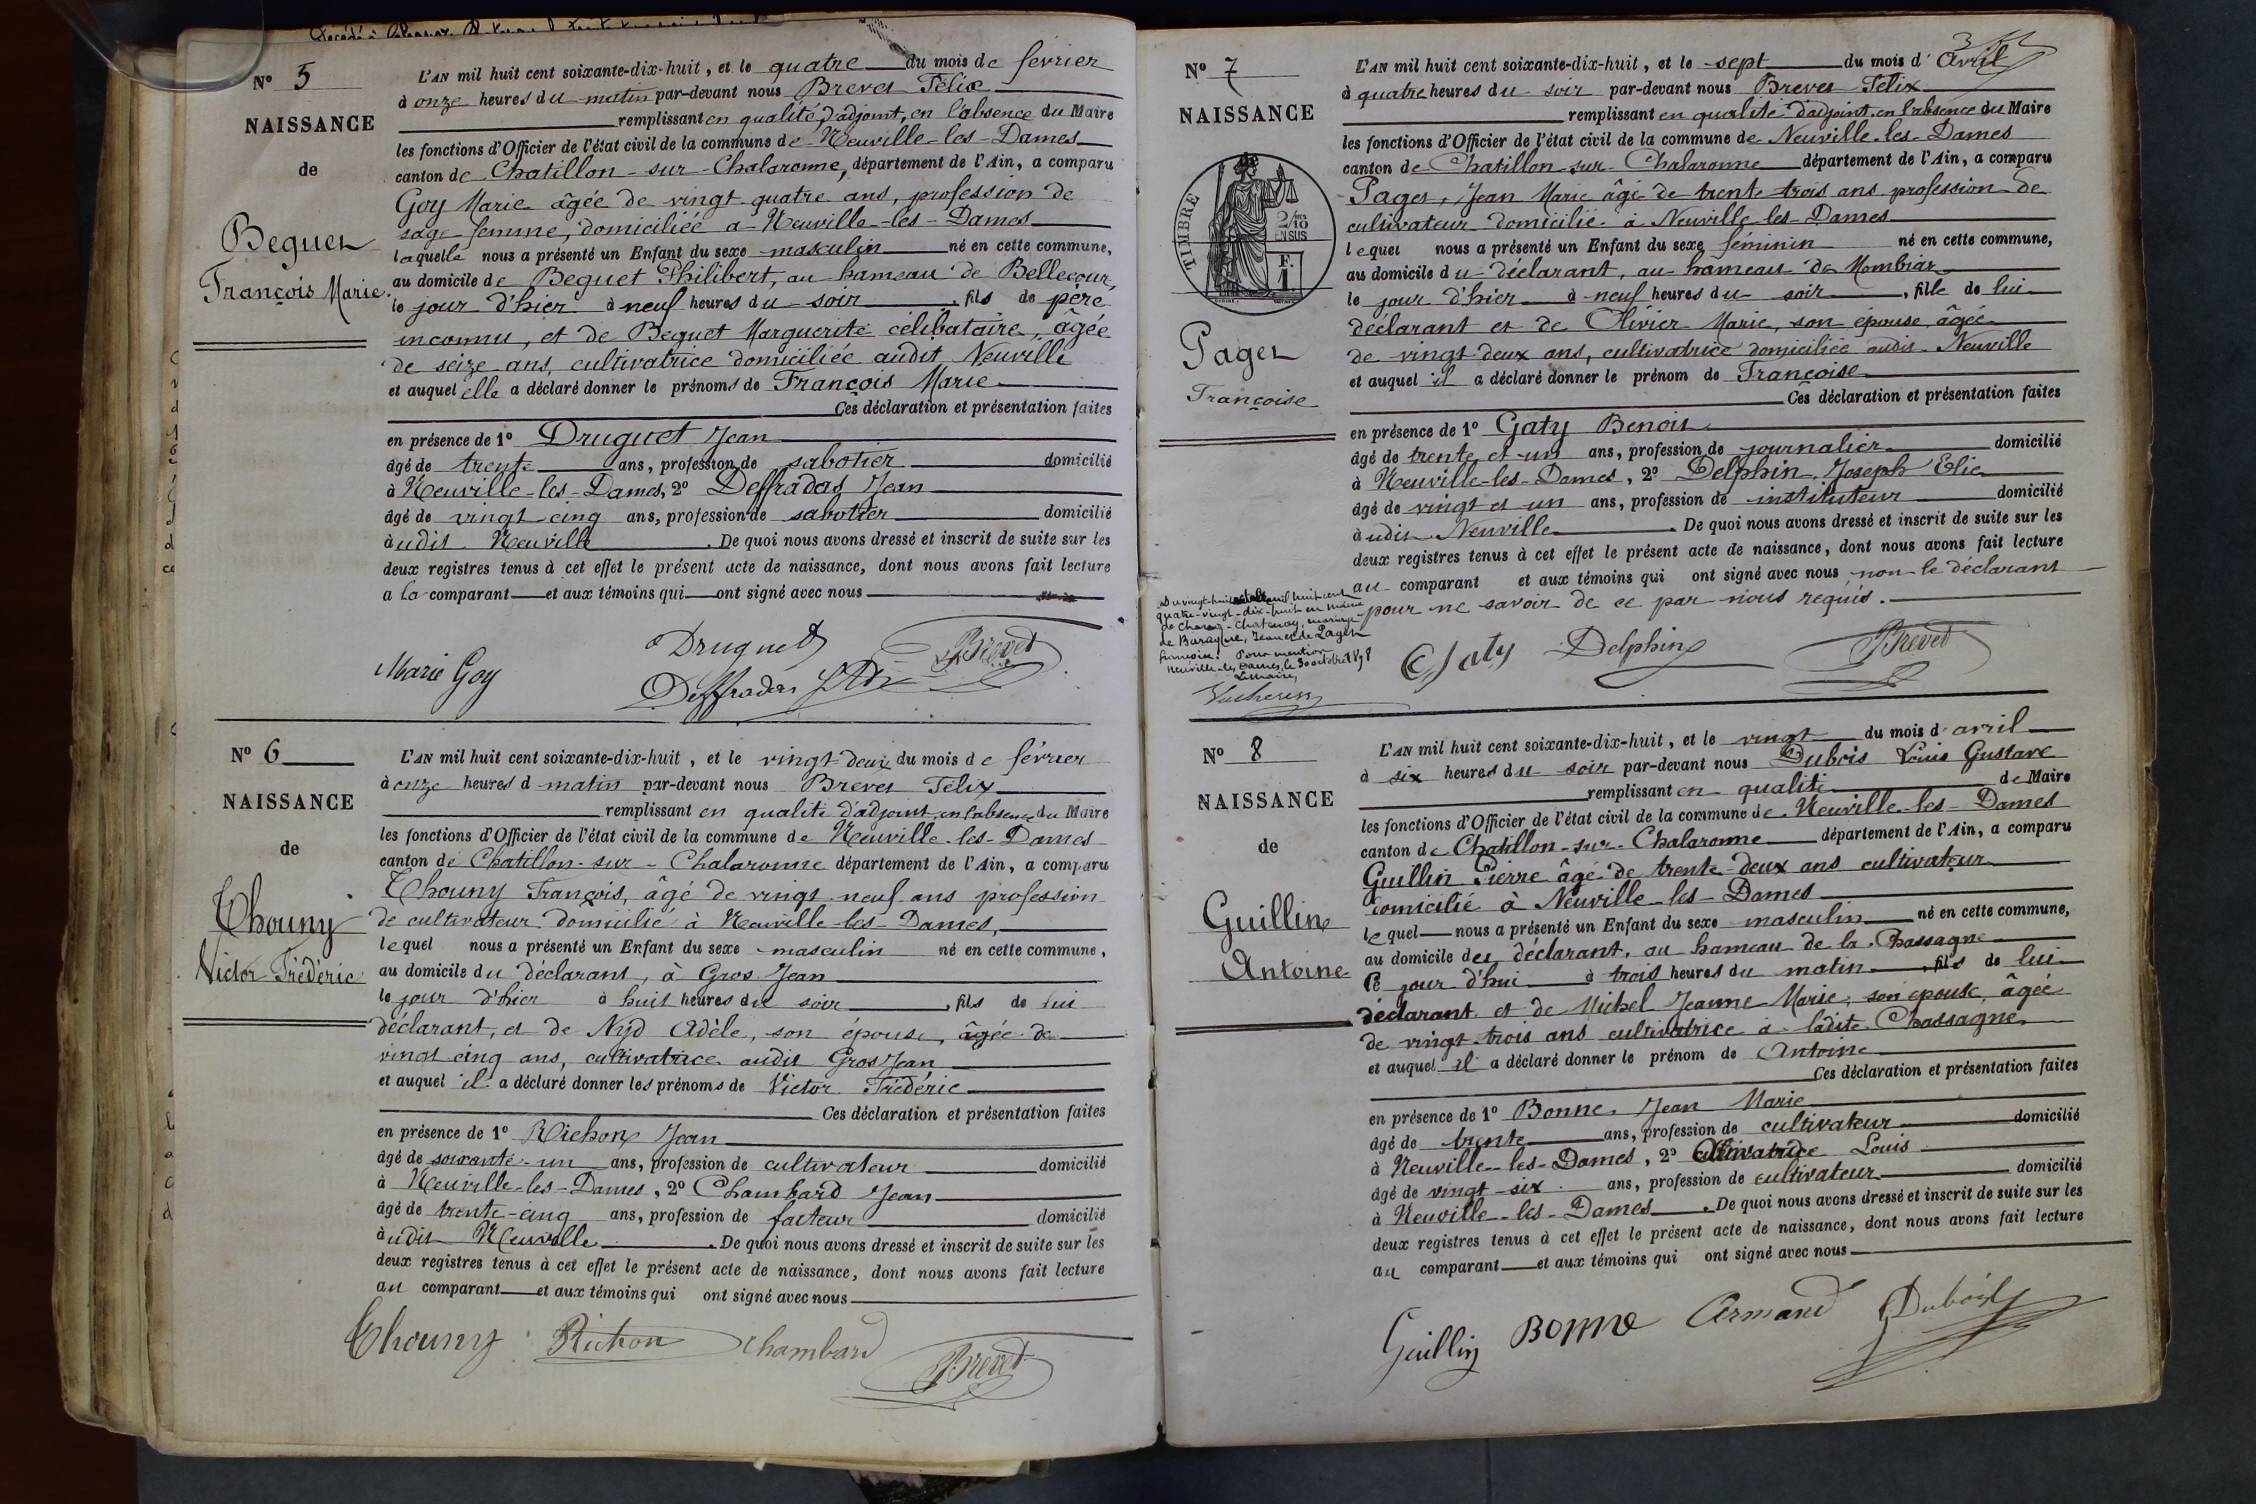 N° 5
NAISSANCE
de
Beguet
François Marie
L'AN mil huit cent soixante-dix-huit, et le quatre du mois de février
à onze heures du matin par-devant nous Brevet Félix
remplissant en qualité d'adjoint, en l'absence du Maire
les fonctions d'Officier de l'état civil de la commune de Neuville-les-Dames
canton de Chatillon-sur-Chalaronne, département de l'Ain, a comparu
Goy Marie âgée de vingt quatre ans, profession de
sage femme, domiciliée à Neuville-les-Dames
laquelle nous a présenté un Enfant du sexe masculin né en cette commune,
au domicile de Beguet Philibert, au hameau de Bellecour,
le jour d'hier à neuf heures du soir, fils de père
inconnu, et de Beguet Marguerite célibataire, âgée
de seize ans, cultivatrice domiciliée audit Neuville
et auquel elle a déclaré donner le prénoms de François Marie
Ces déclaration et présentation faites
en présence de 1° Druguet Jean
âgé de trente ans, profession de sabotier domicilié
à Neuville-les-Dames, 2° Deffradas Jean
âgé de vingt-cinq ans, profession de sabotier domicilié
audit Neuville. De quoi nous avons dressé et inscrit de suite sur les
deux registres tenus à cet effet le présent acte de naissance, dont nous avons fait lecture
a la comparant et aux témoins qui ont signé avec nous
Druguet
Brevet
Marie Goy
Deffradas
N° 6
NAISSANCE
de
Thouny
Victor Frédéric
L'AN mil huit cent soixante-dix-huit, et le vingt-deux du mois de février
à onze heures d matin par-devant nous Brevet Félix
remplissant en qualité d'adjoint, en l'absence du Maire
les fonctions d'Officier de l'état civil de la commune de Neuville-les-Dames
canton de Chatillon-sur-Chalaronne département de l'Ain, a comparu
Thouny François, âgé de vingt neuf ans profession
de cultivateur domicilié à Neuville-les-Dames,
lequel nous a présenté un Enfant du sexe masculin né en cette commune,
au domicile du déclarant, à Gros Jean
le jour d'hier à huit heures du soir, fils de lui
déclarant, et de Nyd Adèle, son épouse, âgée de
vingt cinq ans, cultivatrice audit Gros Jean
et auquel il a déclaré donner les prénoms de Victor Frédéric
Ces déclaration et présentation faites
en présence de 1° Richon Jean
âgé de soixante-un ans, profession de cultivateur domicilié
à Neuville-les-Dames, 2° Chambard Jean
âgé de trente-cinq ans, profession de facteur domicilié
audit Neuville. De quoi nous avons dressé et inscrit de suite sur les
deux registres tenus à cet effet le présent acte de naissance, dont nous avons fait lecture
au comparant et aux témoins qui ont signé avec nous
Thouny Richon Chambard
Brevet
3
N° 7
NAISSANCE
TIMBRE
2/10
EN SUS
F.
1
Paget
Françoise
L'AN mil huit cent soixante-dix-huit, et le sept du mois d'avril
à quatre heures du soir par-devant nous Brevet Félix
remplissant en qualité d'adjoint en l'absence du Maire
les fonctions d'Officier de l'état civil de la commune de Neuville-les-Dames
canton de Chatillon-sur-Chalaronne département de l'Ain, a comparu
Paget, Jean Marie âgé de trente trois ans profession de
cultivateur domicilié à Neuville-les-Dames
lequel nous a présenté un Enfant du sexe féminin né en cette commune,
au domicile du déclarant, au hameau de Mombiar
le jour d'hier à neuf heures du soir, fille de lui
déclarant et de Olivier Marie, son épouse âgée
de vingt deux ans, cultivatrice domiciliée audit Neuville
et auquel il a déclaré donner le prénom de Françoise
Ces déclaration et présentation faites
en présence de 1° Gaty Benoit
âgé de trente et un ans, profession de journalier domicilié
à Neuville-les-Dames, 2° Delphin Joseph Elie
âgé de vingt et un ans, profession de instituteur domicilié
audit Neuville. De quoi nous avons dressé et inscrit de suite sur les
deux registres tenus à cet effet le présent acte de naissance, dont nous avons fait lecture
au comparant et aux témoins qui ont signé avec nous non le déclarant
pour ne savoir de ce par nous requis.
Du vingt-huit mil huit cent
quatre-vingt-dix-huit en mairie
de Chatenay, mariage
de Jean et de Paget
Françoise. Pour mention
Neuville-les-Dames, le 30 octobre 1898
Le maire,
Gaty Delphin Brevet
N° 8
NAISSANCE
de
Guillin
Antoine
L'AN mil huit cent soixante-dix-huit, et le vingt du mois d'avril
à six heures du soir par-devant nous Dubois Louis Gustave
remplissant en qualité de Maire
les fonctions d'Officier de l'état civil de la commune de Neuville-les-Dames
canton de Chatillon-sur-Chalaronne département de l'Ain, a comparu
Guillin Pierre âgé de trente-deux ans cultivateur
domicilié à Neuville-les-Dames
lequel nous a présenté un Enfant du sexe masculin né en cette commune,
au domicile du déclarant, au hameau de la Chassagne
ce jour d'hui à trois heures du matin, fils de lui
déclarant et de Michel Jeanne Marie, son épouse, âgée
de vingt-trois ans cultivatrice à ladite Chassagne,
et auquel il a déclaré donner le prénom de Antoine
Ces déclaration et présentation faites
en présence de 1° Bonne Jean Marie
âgé de trente ans, profession de cultivateur domicilié
à Neuville-les-Dames, 2° Louis
âgé de vingt-six ans, profession de cultivateur domicilié
à Neuville-les-Dames. De quoi nous avons dressé et inscrit de suite sur les
deux registres tenus à cet effet le présent acte de naissance, dont nous avons fait lecture
au comparant et aux témoins qui ont signé avec nous
Guillin Bonne Armand Dubois